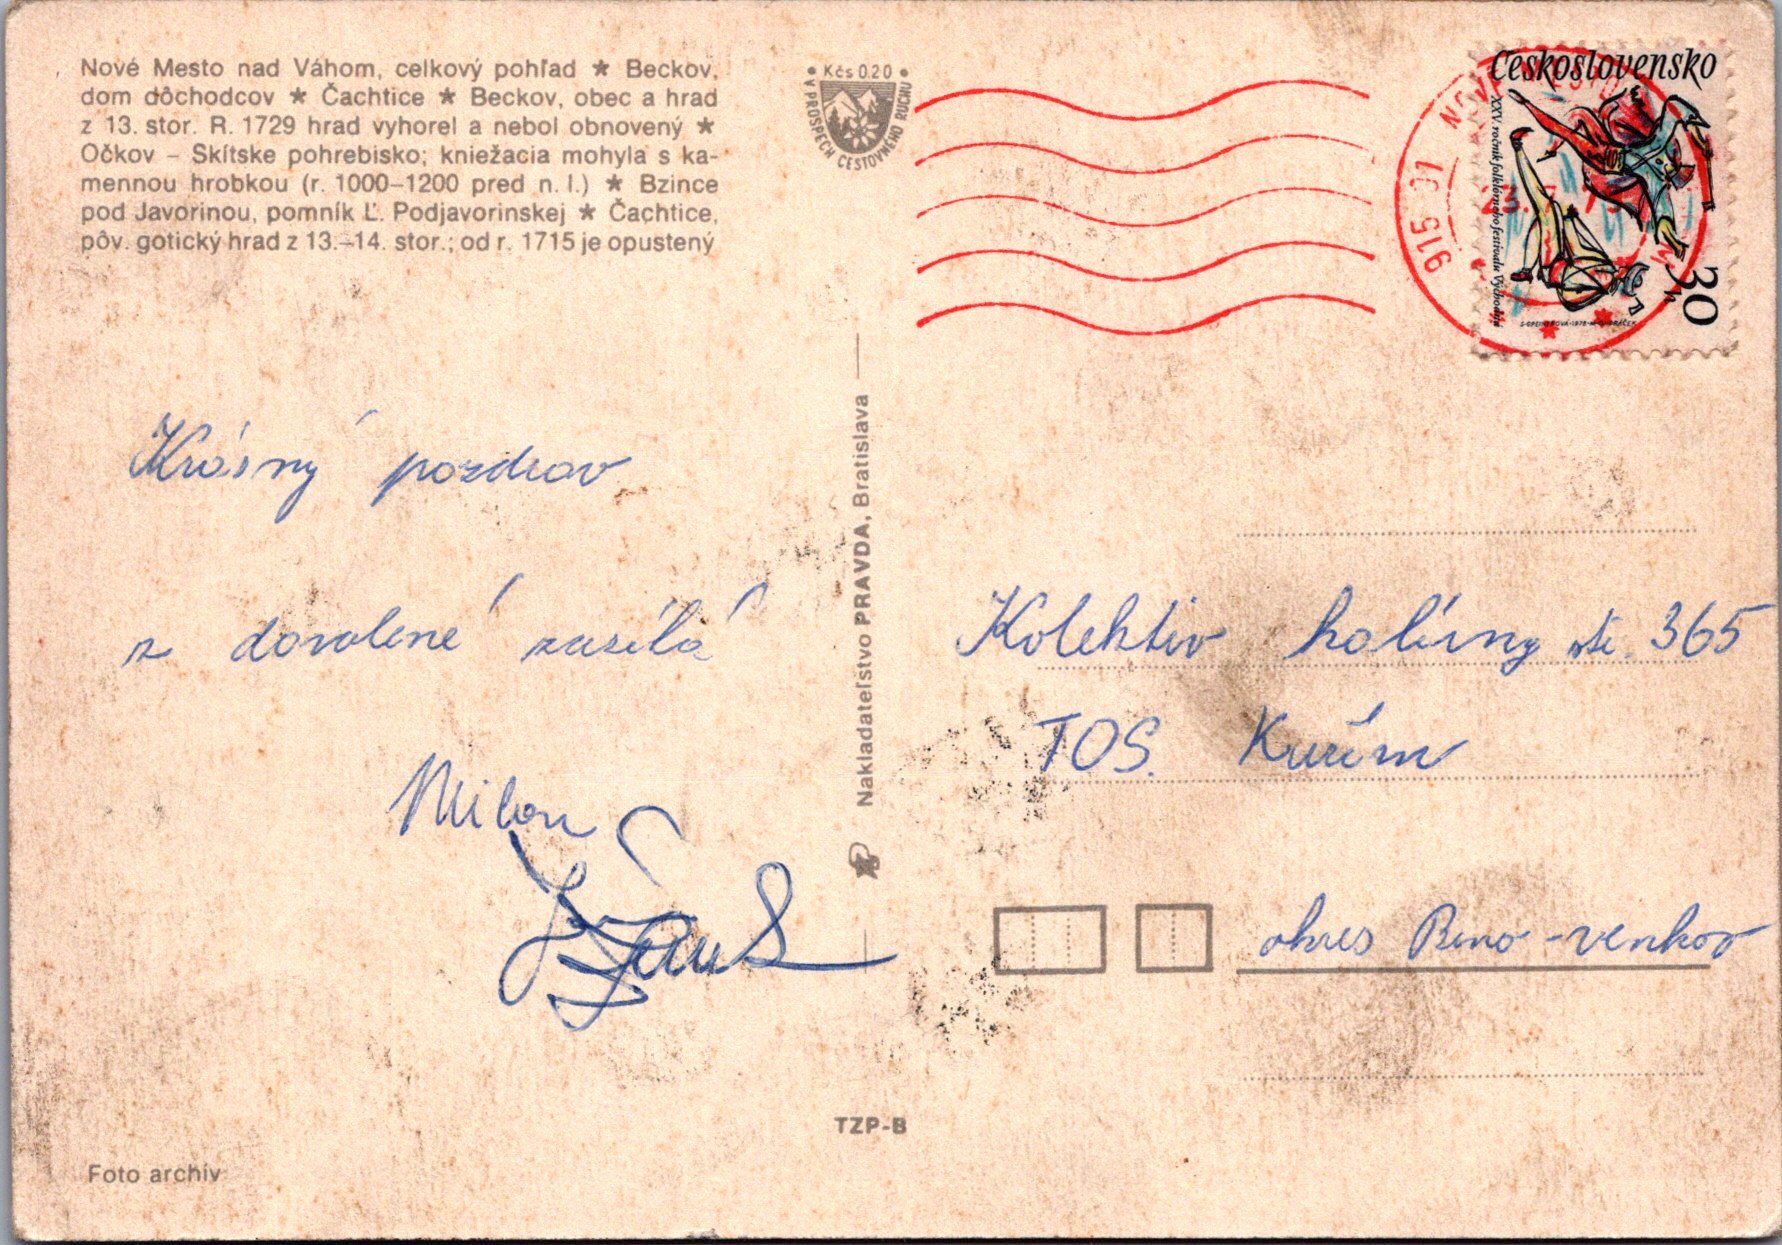 Nové Mesto nad Váhom, celkový pohľad ★ Beckov,
dom dôchodcov ★ Čachtice ★ Beckov, obec a hrad
z 13. stor. R. 1729 hrad vyhorel a nebol obnovený ★
Očkov – Skítske pohrebisko; kniežacia mohyla s ka-
mennou hrobkou (r. 1000–1200 pred n. l.) ★ Bzince
pod Javorinou, pomník Ľ. Podjavorinskej ★ Čachtice,
pôv. gotický hrad z 13.–14. stor.; od r. 1715 je opustený
• Kčs 0.20 •
V PROSPECH CESTOVNÉHO RUCHU
915 01 NOVÉ MESTO
Československo
XXV. ročník folklórneho festivalu Východná
30 h
Krásný pozdrav
z dovolené zasílá
Milan
Nakladateľstvo PRAVDA, Bratislava
Kolektiv kalírny stř. 365
TOS. Kuřim
okres Brno-venkov
TZP-B
Foto archív